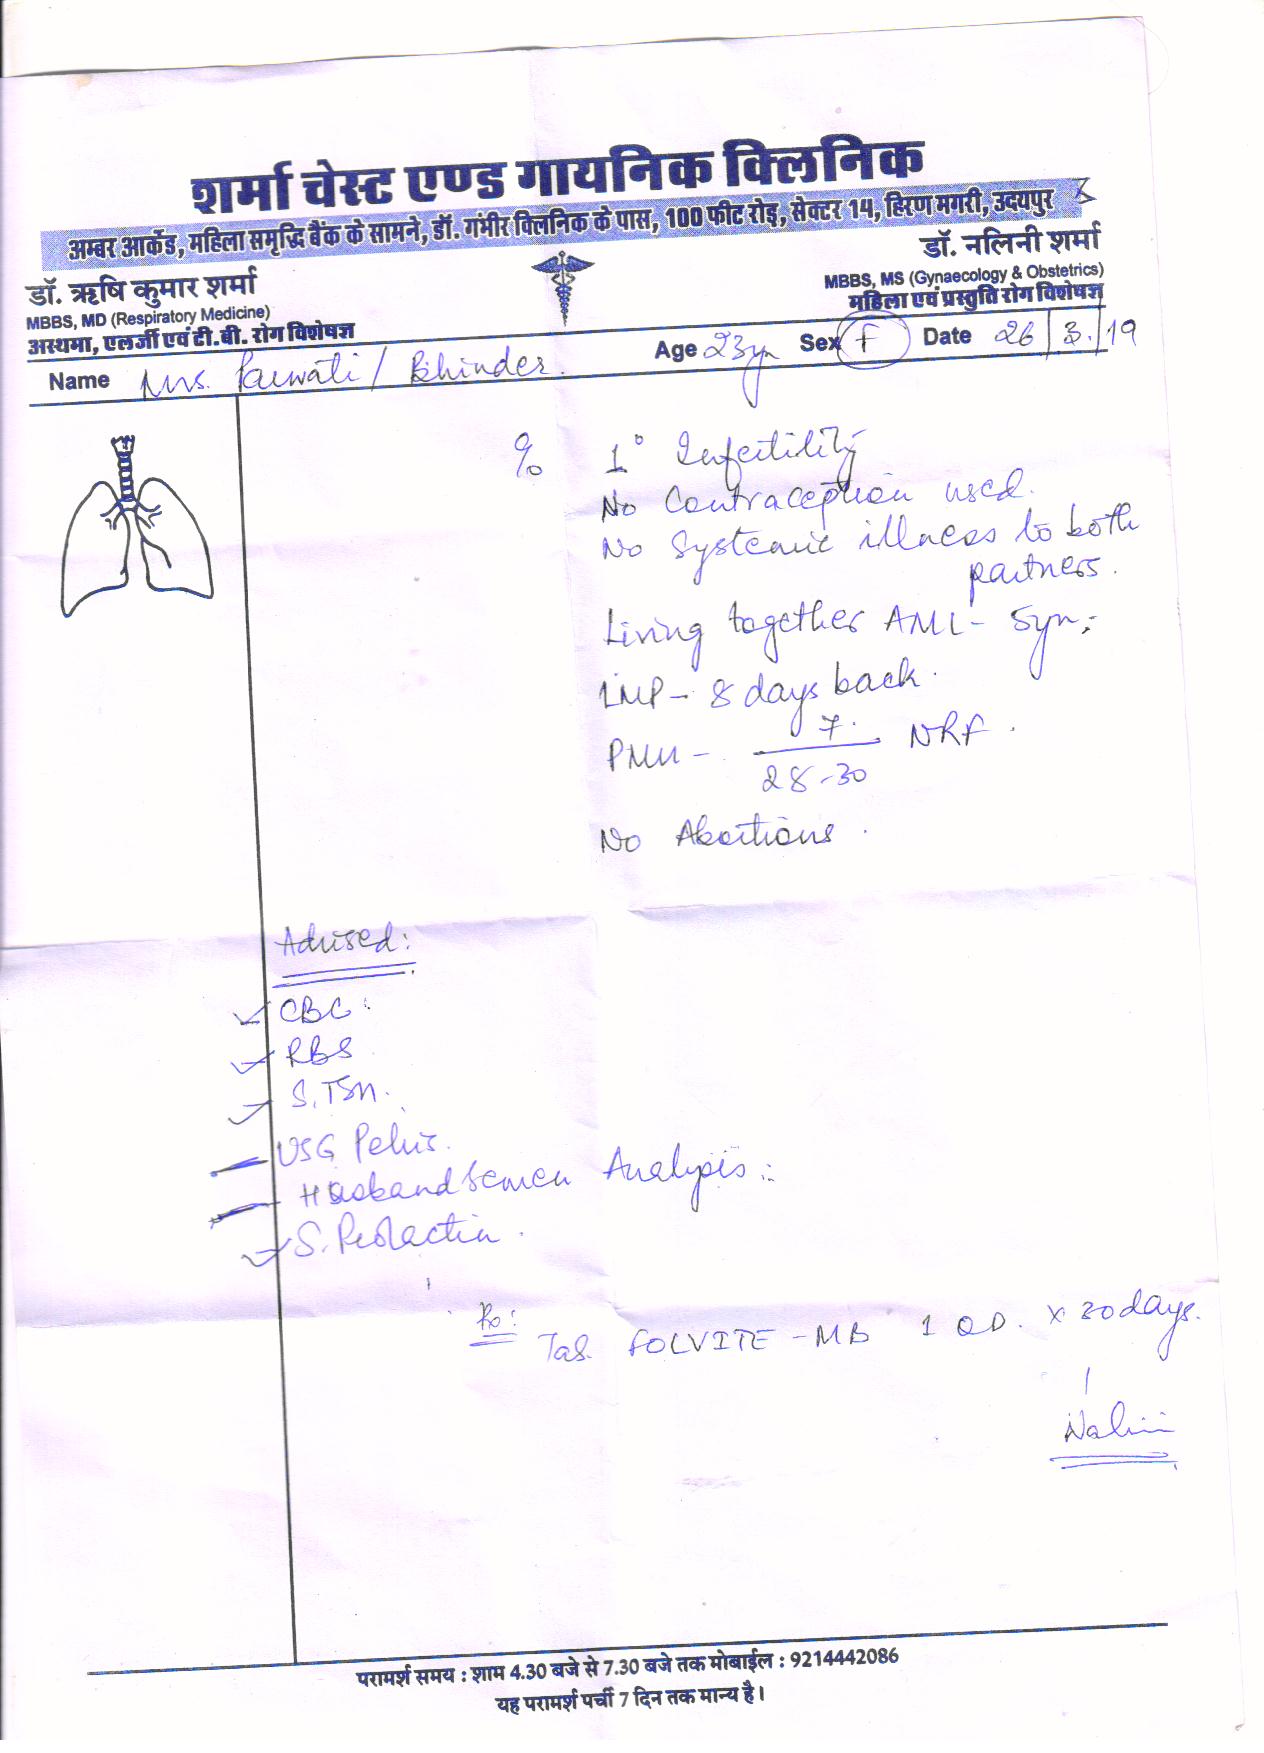 शर्मा चेस्ट एण्ड गायनिक क्लिनिक
अम्बर आर्केड, महिला समृद्धि बैंक के सामने, डॉ. गंभीर क्लिनिक के पास, 100 फीट रोड़, सेक्टर 14, हिरण मगरी, उदयपुर
डॉ. ऋषि कुमार शर्मा
MBBS, MD (Respiratory Medicine)
अस्थमा, एलर्जी एवं टी.बी. रोग विशेषज्ञ
डॉ. नलिनी शर्मा
MBBS, MS (Gynaecology & Obstetrics)
महिला एवं प्रस्तुति रोग विशेषज्ञ
Name Mrs. Parwati / Bhinder. Age 23yr Sex F Date 26/3/19
% 1° Infertility
No Contraception used.
No Systemic illness to both
partners.
Living together AML - 5yr,
LMP - 8 days back.
PMH - 7/28-30 NRF.
No Abortions.
Advised:
CBC
RBS
S. TSH.
USG Pelvis.
Husband Semen Analysis
S. Prolactin.
Rx:
Tab. FOLVITE - MB 1 OD. x 30 days.
Nalini
परामर्श समय : शाम 4.30 बजे से 7.30 बजे तक मोबाईल : 9214442086
यह परामर्श पर्ची 7 दिन तक मान्य है।